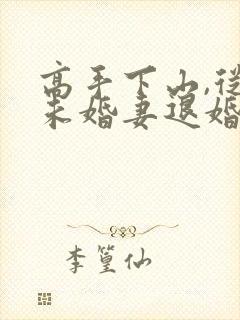 高手下山,从
未婚妻退婚
李篁仙